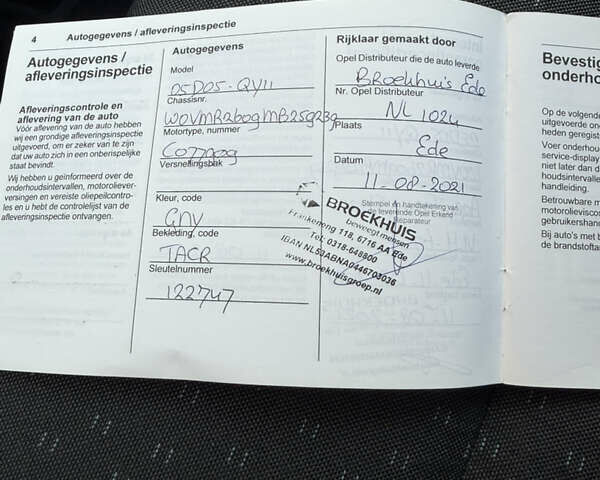 4 Autogegevens / afleveringsinspectie
Autogegevens /
afleveringsinspectie
Afleveringscontrole en
aflevering van de auto
Vóór aflevering van de auto hebben
wij een grondige afleveringsinspectie
uitgevoerd, om er zeker van te zijn
dat uw auto zich in een onberispelijke
staat bevindt.
Wij hebben u geïnformeerd over de
onderhoudsintervallen, motoroliever-
versingen en vereiste oliepeilcontro-
les en u hebt de controlelijst van de
afleveringsinspectie ontvangen.
Autogegevens
Model
Chassisnr.
Motortype, nummer
Versnellingsbak
Kleur, code
GNV
Bekleding, code
TACR
Sleutelnummer
122747
Rijklaar gemaakt door
Opel Distributeur die de auto leverde
Broekhuis Ede
Nr. Opel Distributeur
NL 1024
Plaats
Ede
Datum
11-08-2021
Stempel en handtekening van
de leverende Opel Erkend
Reparateur
BROEKHUIS
beweegt mensen
Frankeneng 118, 6716 AA Ede
Tel. 0318-648800
IBAN NL53ABNA0446703036
www.broekhuisgroep.nl
Bevestig
onderho
Op de volgende
uitgevoerde on
heden geregist
Voer onderhou
service-display
niet later dan d
onderhoudsintervallen
handleiding.
Betrouwbare m
motorolieviscos
gebruikershand
Bij auto's met b
de brandstoftan